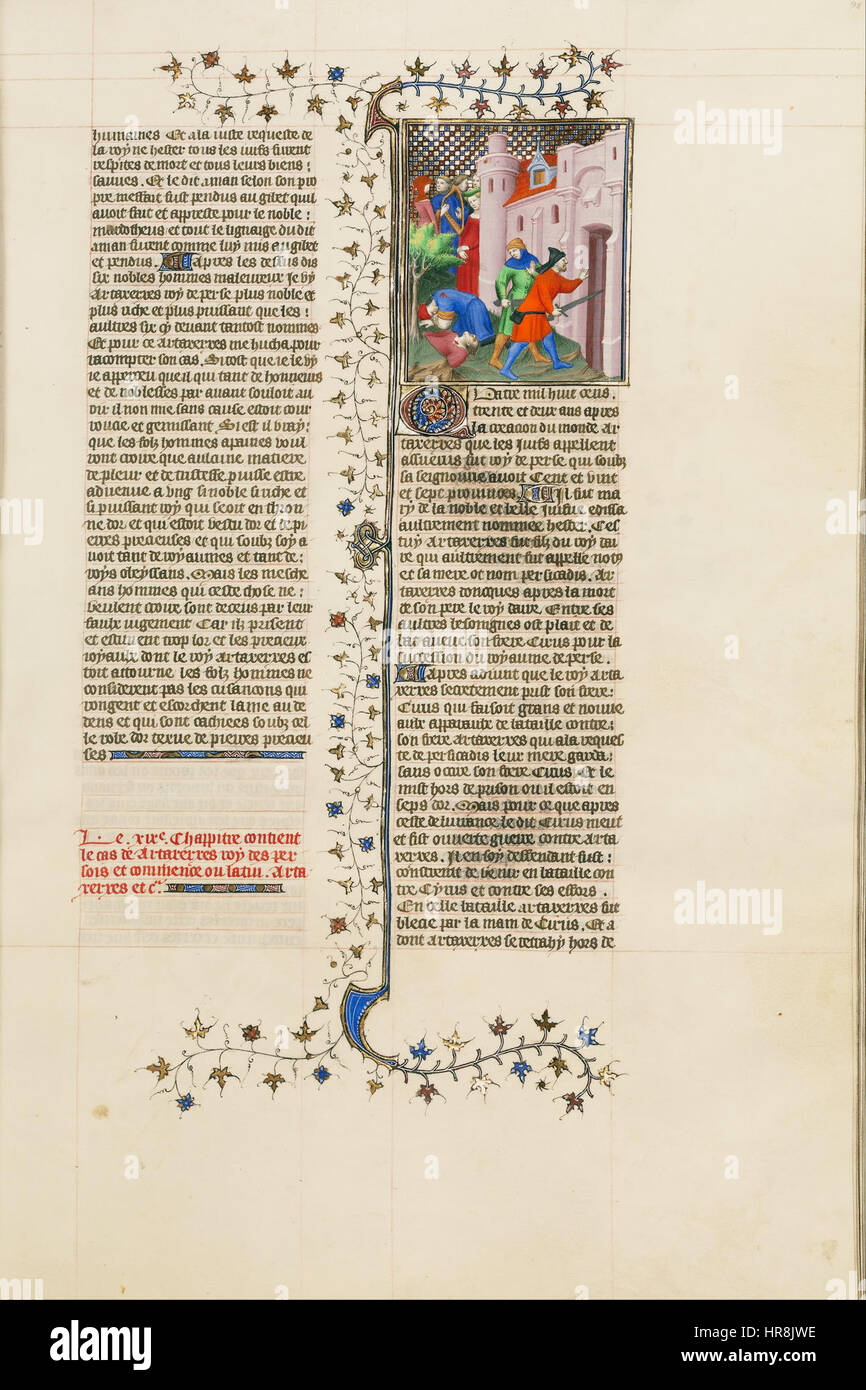 humaines Et a la iuste requeste de
la royne hester tous les iuifs furent
respites de mort et tous leurs biens :
sauves . Et le dit aman selon son pro
pre meffait fust pendus au gibet quil
avoit fait et appreste pour le noble :
mardocheus et tout le lignaige du dit
aman furent comme luy mis au gibet
et pendus . Apres les dessus dis
six nobles hommes maleureux Je vy
Artaxerxes roy de perse plus noble et
plus riche et plus puissant que les :
aultres six cy devant tantost nommes
Et pour ce artaxerxes me hucha pour
racompter son cas . Si tost que ie le vy
ie apperceu que il qui tant de honneurs
et de noblesses par avant souloit au
oir il non mie sans cause estoit cour
rouce et gemissant . Si est il vray :
que les folz hommes apaines voul
ront croire que aulcune matiere
de pleur et de tristesse puisse estre
advenue a ung si noble si riche et
si puissant roy qui seoit en thron
ne dor et qui estoit vestu dor et de pi
erres precieuses et qui soubz soy a
voit tant de royaumes et tant de :
roys obeyssans . Mais les mesche
ans hommes qui ceste chose ne :
veulent croire sont deceus par leur
faulx iugement Car ilz prisent
et estiment trop lor et les precieux
ioyaulx dont le roy artaxerxes es
toit attourne les folz hommes ne
considerent pas les cusancons qui
rongent et escorchent lame au de
dens et qui sont cachiees soubz cel
le robe dor texue de pierres precieu
ses
Le . xixe . Chappitre contient
le cas de Artaxerxes roy des per
sois et commence ou latin . Arta
xerxes et c.
Quatre mil huit cens .
trente et deux ans apres
la creacion du monde Ar
taxerxes que les iuifs appellent
assuerus fut roy de perse qui soubz
sa seignourie avoit Cent et vint
et sept provinces . Il fut ma
ry de la noble et belle iuifve edissa
aultrement nommee hester . Ces
tuy artaxerxes fut filz du roy dai
re qui aultrement fut appelle noty
et sa mere ot nom persicadis . Ar
taxerxes doncques apres la mort
de son pere le roy daire . Entre ses
aultres besoignes ost plait et de
bat avecques son frere Cirus pour la
succession du royaume de perse .
Apres advint que le roy arta
xerxes secretement prist son frere :
Cirus qui faisoit grans et nouve
aulx appareils de bataille contre :
son frere artaxerxes qui a la reques
te de persicadis leur mere garda :
sans occire son frere Cirus Et le
mist hors de prison ou il estoit en
seps dor . Mais pour ce que apres
ceste delivrance le dit Cirus meut
et fist ouverte guerre contre arta
xerxes . Il en soy deffendant fust :
constraint de venir en bataille con
tre Cyrus et contre ses effors .
En celle bataille artaxerxes fut
blecie par la main de Cirus . Et a
dont artaxerxes se retrahy hors de
alamy
alamy
alamy
Image ID: HR8JWE
www.alamy.com